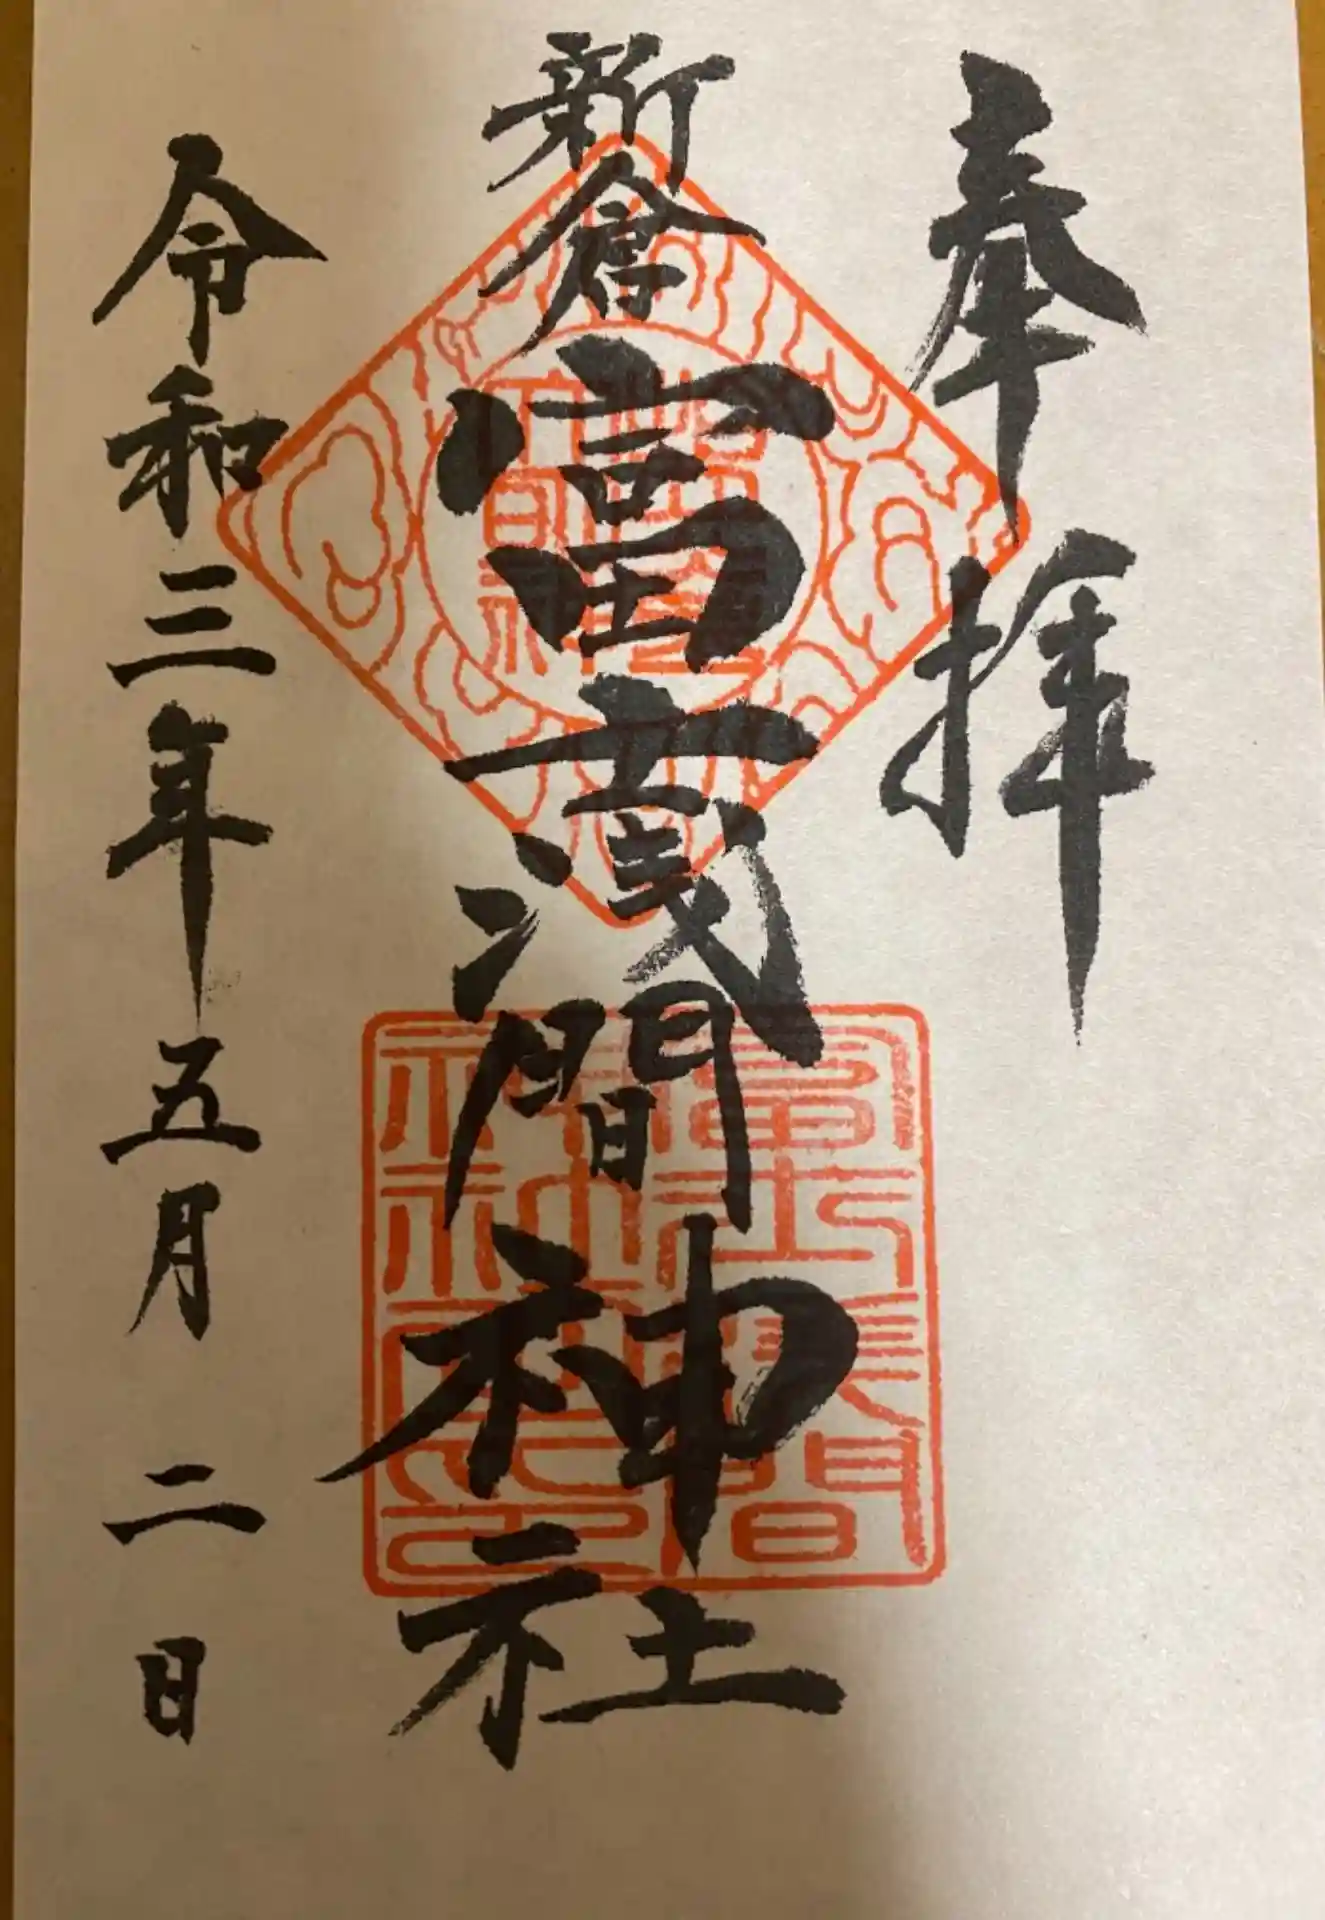 奉拝
新倉
富士浅間神社
令和三年五月二日
富士浅間
神社